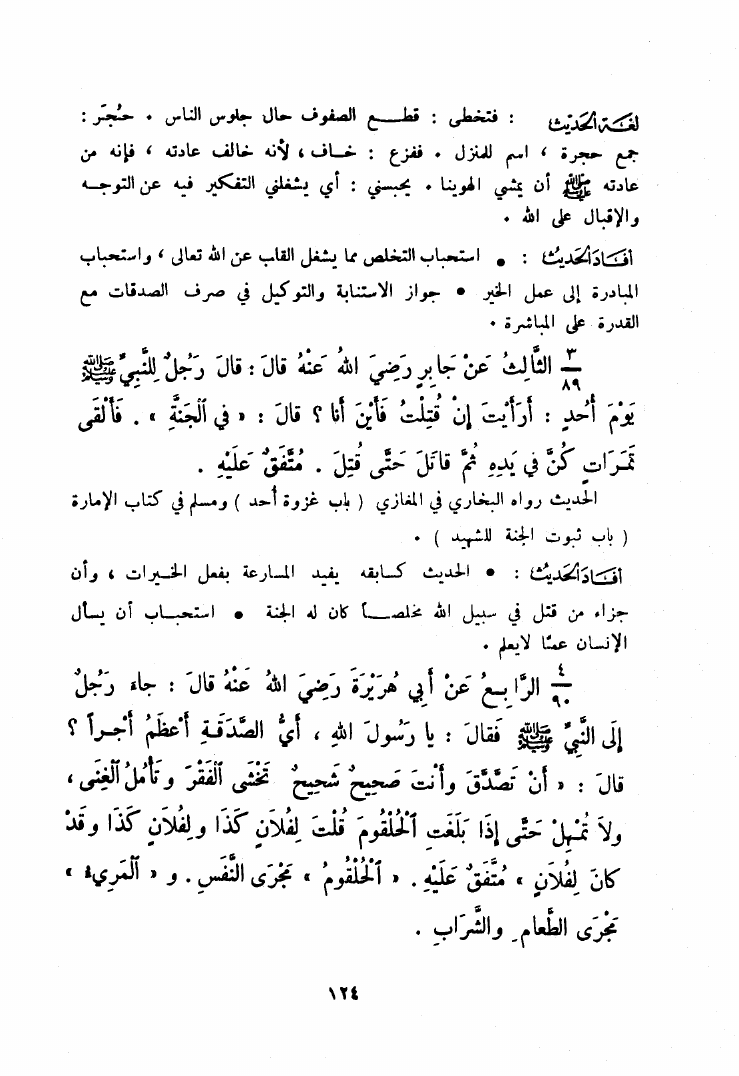 لغة الحديث : فتخطى : قطع الصفوف حال جلوس الناس . حُجَر :
جمع حجرة ، اسم للمنزل . ففزع : خاف ، لأنه خالف عادته ، فإنه من
عادته ﷺ أن يمشي الهوينا . يحبسني : أي يشغلني التفكير فيه عن التوجه
والإقبال على الله .
أفاد الحديث : • استحباب التخلص مما يشغل القلب عن الله تعالى ، واستحباب
المبادرة إلى عمل الخير • جواز الاستنابة والتوكيل في صرف الصدقات مع
القدرة على المباشرة .
٣/٨٩ الثَّالِثُ عَنْ جَابِرٍ رَضِيَ اللهُ عَنْهُ قالَ : قالَ رَجُلٌ لِلنَّبِيِّ ﷺ
يَوْمَ أُحُدٍ : أَرَأَيْتَ إِنْ قُتِلْتُ فَأَيْنَ أَنا ؟ قالَ : « في الْجَنَّةِ » . فَأَلْقَى
تَمَرَاتٍ كُنَّ في يَدِهِ ثُمَّ قاتَلَ حَتَّى قُتِلَ . مُتَّفَقٌ عَلَيْهِ .
الحديث رواه البخاري في المغازي ( باب غزوة أحد ) ومسلم في كتاب الإمارة
( باب ثبوت الجنة للشهيد ) .
أفاد الحديث : • الحديث كسابقه يفيد المسارعة بفعل الخيرات ، وأن
جزاء من قتل في سبيل الله مخلصاً كان له الجنة • استحباب أن يسأل
الإنسان عمّا لايعلم .
٤/٩٠ الرَّابِعُ عَنْ أَبِي هُرَيْرَةَ رَضِيَ اللهُ عَنْهُ قالَ : جاءَ رَجُلٌ
إِلَى النَّبِيِّ ﷺ فَقالَ : يا رَسُولَ اللهِ ، أَيُّ الصَّدَقَةِ أَعْظَمُ أَجْراً ؟
قالَ : « أَنْ تَصَدَّقَ وأَنْتَ صَحِيحٌ شَحِيحٌ تَخْشَى الْفَقْرَ وتَأْمُلُ الْغِنَى ،
ولاَ تُمْهِلْ حَتَّى إِذَا بَلَغَتِ الْحُلْقُومَ قُلْتَ لِفُلاَنٍ كَذَا ولِفُلاَنٍ كَذَا وقَدْ
كانَ لِفُلاَنٍ » مُتَّفَقٌ عَلَيْهِ . « الْحُلْقُومُ » مَجْرَى النَّفَسِ . و « الْمَرِيءُ »
مَجْرَى الطَّعامِ والشَّرَابِ .
١٢٤